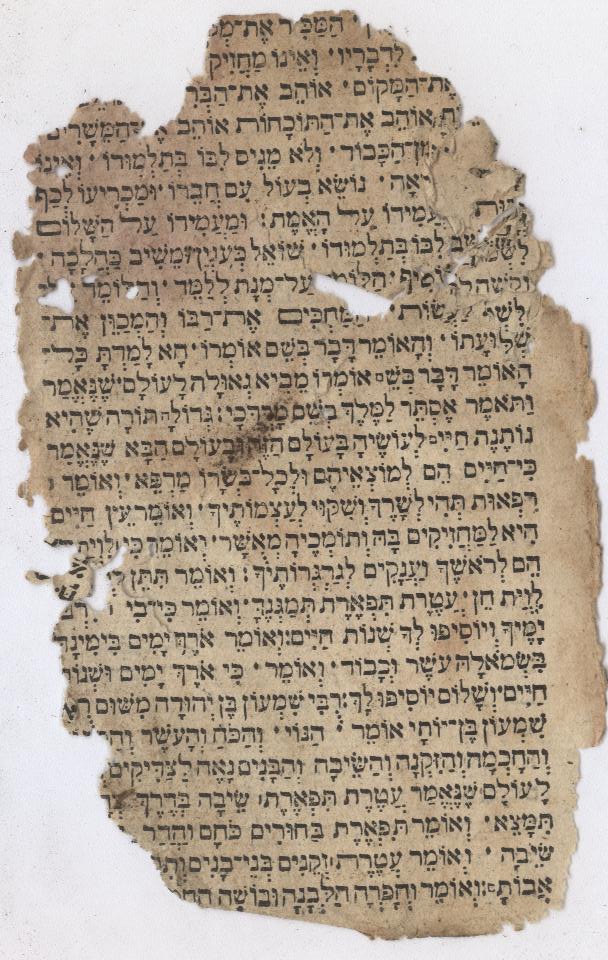 הַמַּכִּיר אֶת־
לִדְבָרָיו׳ וְאֵינוֹ מַחֲזִיק
אֶת־הַמָּקוֹם׳ אוֹהֵב אֶת־
אוֹהֵב אֶת־הַתּוֹכָחוֹת אוֹהֵב הַמֵּשָׁרִים
מִן־הַכָּבוֹד׳ וְלֹא מֵגִיס לִבּוֹ בְּתַלְמוּדוֹ׳ וְאֵינוֹ
נוֹשֵׂא בְעוֹל עִם חֲבֵרוֹ׳ וּמַכְרִיעוֹ לְכַף
עַל הָאֱמֶת׃ וּמַעֲמִידוֹ עַל הַשָּׁלוֹם
לִבּוֹ בְּתַלְמוּדוֹ׳ שׁוֹאֵל בְּעִנְיָן וּמֵשִׁיב בַּהֲלָכָה׳
עַל־מְנָת לְלַמֵּד׳
הַמַּחְכִּים אֶת־רַבּוֹ וְהַמְכַוֵּין אֶת־
שְׁמוּעָתוֹ׳ וְהָאוֹמֵר דָּבָר בְּשֵׁם אוֹמְרוֹ׳ הָא לָמַדְתָּ כָּל־
הָאוֹמֵר דָּבָר בְּשֵׁם אוֹמְרוֹ מֵבִיא גְאוּלָּה לָעוֹלָם׳ שֶׁנֶּאֱמַר
וַתֹּאמֶר אֶסְתֵּר לַמֶּלֶךְ בְּשֵׁם מָרְדֳּכָי׃ גְּדוֹלָה תּוֹרָה שֶׁהִיא
נוֹתֶנֶת חַיִּים לְעוֹשֶׂיהָ בָּעוֹלָם הַזֶּה וּבָעוֹלָם הַבָּא שֶׁנֶּאֱמַר
כִּי־חַיִּים הֵם לְמוֹצְאֵיהֶם וּלְכָל־בְּשָׂרוֹ מַרְפֵּא׳ וְאוֹמֵר
רִפְאוּת תְּהִי לְשָׁרֶּךָ וְשִׁקּוּי לְעַצְמוֹתֶיךָ׳ וְאוֹמֵר עֵץ חַיִּים
הִיא לַמַּחֲזִיקִים בָּהּ וְתוֹמְכֶיהָ מְאֻשָּׁר׳ וְאוֹמֵר כִּי לִוְיַת
הֵם לְרֹאשֶׁךָ וַעֲנָקִים לְגַרְגְּרוֹתֶיךָ׃ וְאוֹמֵר תִּתֵּן
לִוְיַת חֵן׳ עֲטֶרֶת תִּפְאֶרֶת תְּמַגְּנֶךָּ׳ וְאוֹמֵר כִּי־בִי
יָמֶיךָ וְיוֹסִיפוּ לְךָ שְׁנוֹת חַיִּים׃ וְאוֹמֵר אֹרֶךְ יָמִים בִּימִינָהּ
בִּשְׂמֹאלָהּ עֹשֶׁר וְכָבוֹד׳ וְאוֹמֵר׳ כִּי אֹרֶךְ יָמִים וּשְׁנוֹת
חַיִּים׳ וְשָׁלוֹם יוֹסִיפוּ לָךְ׃ רַבִּי שִׁמְעוֹן בֶּן יְהוּדָה מִשּׁוּם
שִׁמְעוֹן בֶּן־יוֹחָי אוֹמֵר׳ הַנּוֹי׳ וְהַכֹּחַ וְהָעֹשֶׁר
וְהַחָכְמָה וְהַזִּקְנָה וְהַשֵּׂיבָה וְהַבָּנִים נָאֶה לַצַּדִּיקִים
לָעוֹלָם שֶׁנֶּאֱמַר עֲטֶרֶת תִּפְאֶרֶת׳ שֵׂיבָה בְּדֶרֶךְ
תִּמָּצֵא׳ וְאוֹמֵר תִּפְאֶרֶת בַּחוּרִים כֹּחָם וַהֲדַר
שֵׂיבָה׳ וְאוֹמֵר עֲטֶרֶת זְקֵנִים בְּנֵי־בָנִים
אֲבוֹתָם׃ וְאוֹמֵר וְחָפְרָה הַלְּבָנָה וּבוֹשָׁה